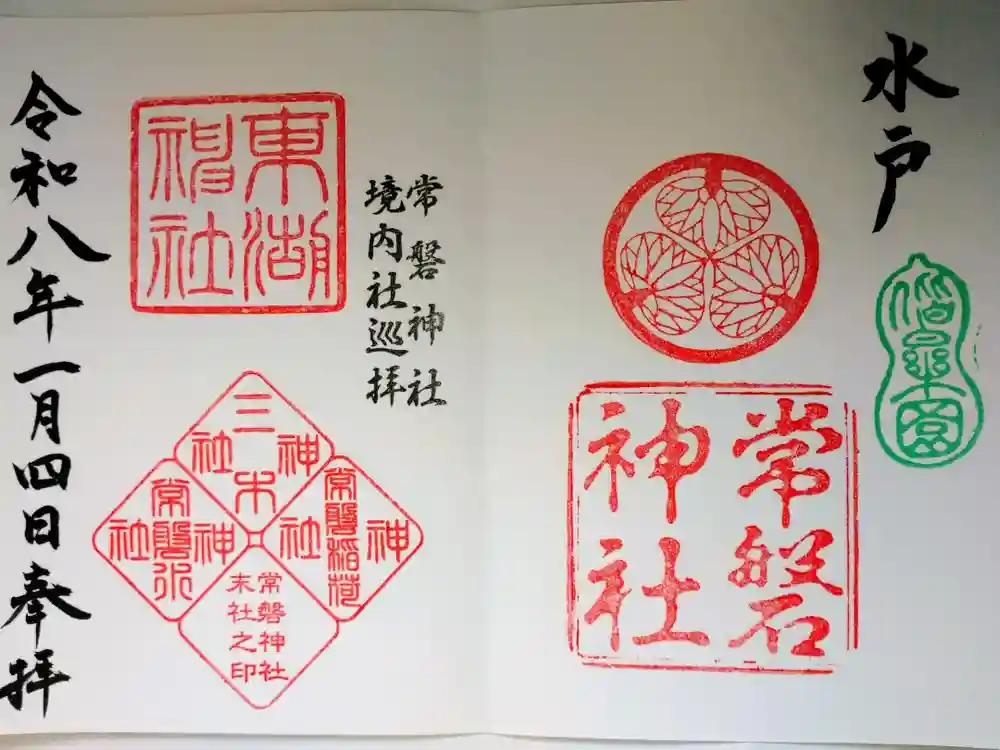 水戸
偕楽園
常磐
神社
常磐神社
境内社巡拝
東湖
神社
三木
神社
常磐稲荷
神社
常磐
神社
常磐神社
末社之印
令和八年一月四日奉拝